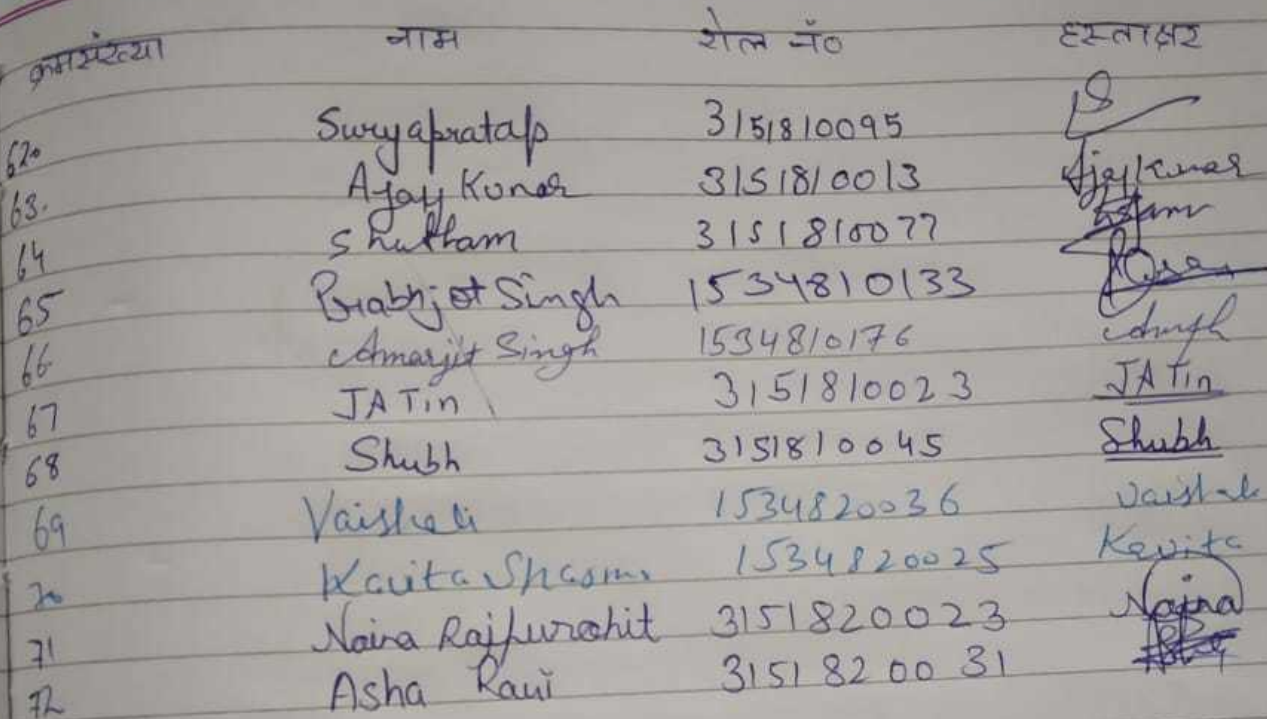 क्रमसंख्या नाम रोल नॉ० हस्ताक्षर
62. Suryapratap 3151810095
63. Ajay Kumar 3151810013 Ajay Kumar
64 Shubham 3151810077
65 Prabhjot Singh 1534810133
66 Amarjit Singh 1534810176
67 JATin 3151810023 JATin
68 Shubh 3151810045 Shubh
69 Vaishali 1534820036 Vaishali
70 Kavita Sharma 1534820025 Kavita
71 Naina Rajpurohit 3151820023 Naina
72 Asha Rani 3151820031